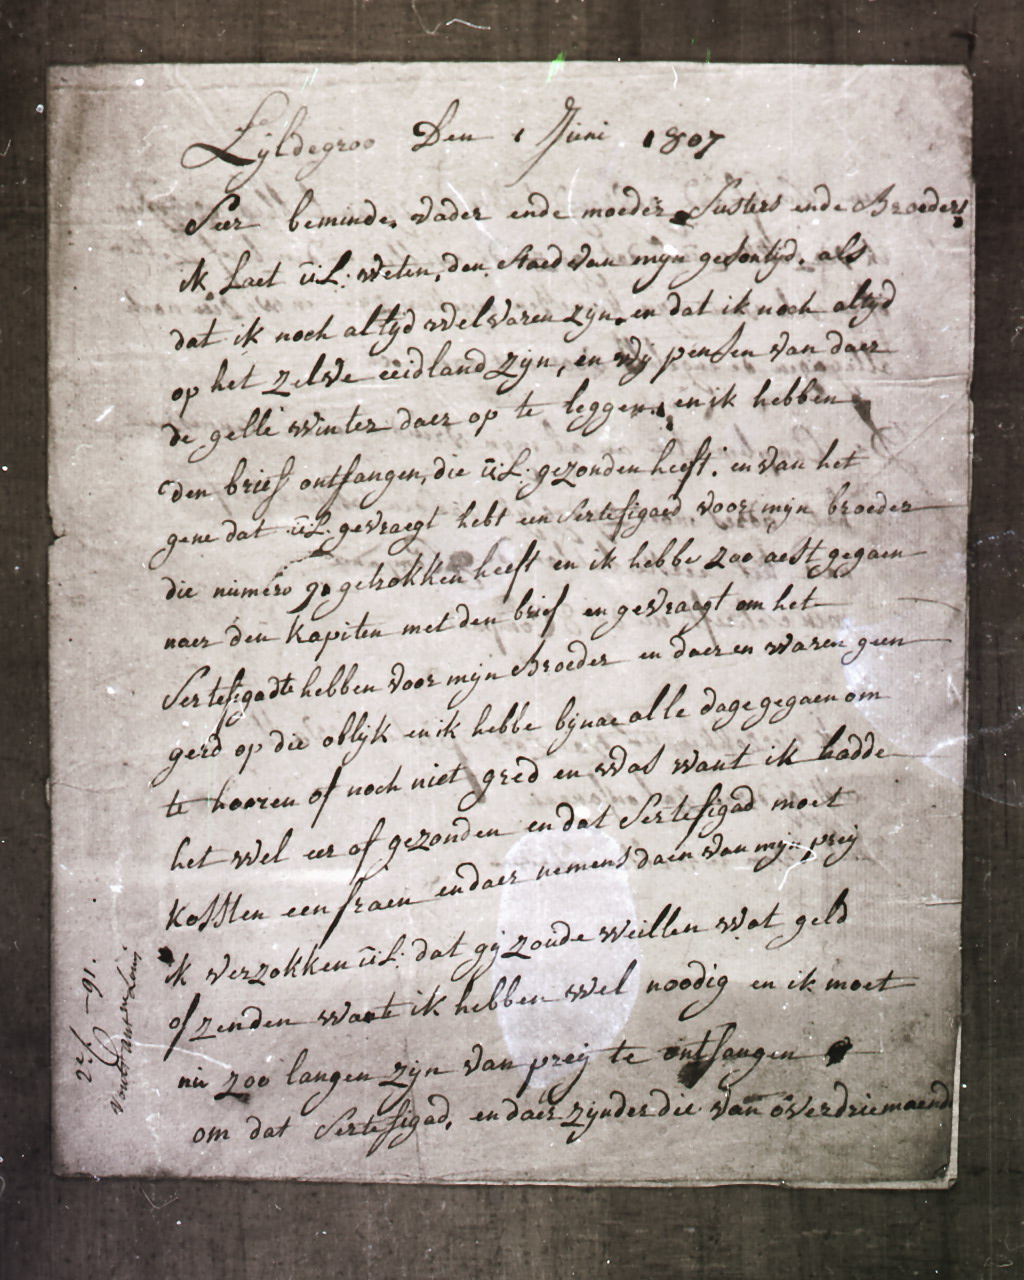 Lyldegroo Den 1 Juni 1807
Seer beminde vader ende moeder Susters ende Broeders
ik Laet üL: weten, den Staed van mijn gesontyd. als
dat ik noch altyd wel varen zyn. en dat ik noch altyd
op het zelve eeidland zyn, en wy pensen van daer
de gelle winter daer op te leggen, en ik hebben
den brief ontfangen, die üL: gezonden heeft: en van het
gene dat üL: gevraegt hebt een Sertefigaed, voor mijn broeder
die numéro 90 getrokken heeft en ik hebbe zoo aest gegaen
naer den kapiten met den brief en gevraegt om het
Sertefigadte hebben voor mijn Broeder en daer en waren geen
gerd op die oblyk en ik hebbe bynae alle dage gegaen om
te hooren of noch niet gred en was want ik hadde
het wel eer af gezonden en dat Sertefigad moet
kossten een fraen en daer nemens daen van mijn prey
ik verzokken üL: dat gy zoude weillen wat geld
of zenden want ik hebben wel noodig en ik moet
nu zoo langen zyn van prey te ontfangen
om dat Sertefigad, en daer zynder die van overdriemaend
2e/ 91.